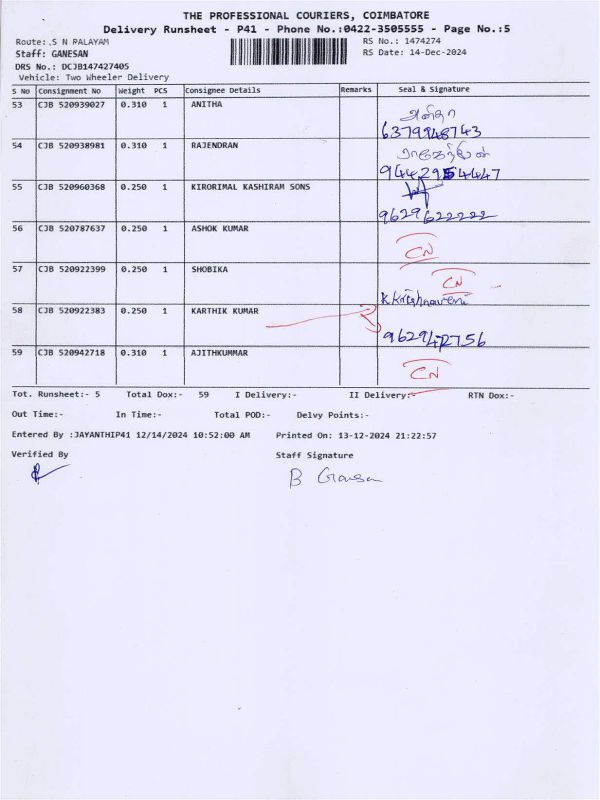 THE PROFESSIONAL COURIERS, COIMBATORE
Delivery Runsheet - P41 - Phone No.:0422-3505555 - Page No.:5
Route:.S N PALAYAM RS No.: 1474274
Staff: GANESAN RS Date: 14-Dec-2024
DRS No.: DCJB147427405
Vehicle: Two Wheeler Delivery
S No Consignment No Weight PCS Consignee Details Remarks Seal & Signature
53 CJB 520939027 0.310 1 ANITHA
அனிதா
6379948743
54 CJB 520938981 0.310 1 RAJENDRAN
ராஜேந்திரன்
55 CJB 520960368 0.250 1 KIRORIMAL KASHIRAM SONS
9629622222
56 CJB 520787637 0.250 1 ASHOK KUMAR
CN
57 CJB 520922399 0.250 1 SHOBIKA
CN
K Krishnaveni
58 CJB 520922383 0.250 1 KARTHIK KUMAR
59 CJB 520942718 0.310 1 AJITHKUMMAR
CN
Tot. Runsheet:- 5 Total Dox:- 59 I Delivery:- II Delivery:- RTN Dox:-
Out Time:- In Time:- Total POD:- Delvy Points:-
Entered By :JAYANTHIP41 12/14/2024 10:52:00 AM Printed On: 13-12-2024 21:22:57
Verified By Staff Signature
B Ganesan